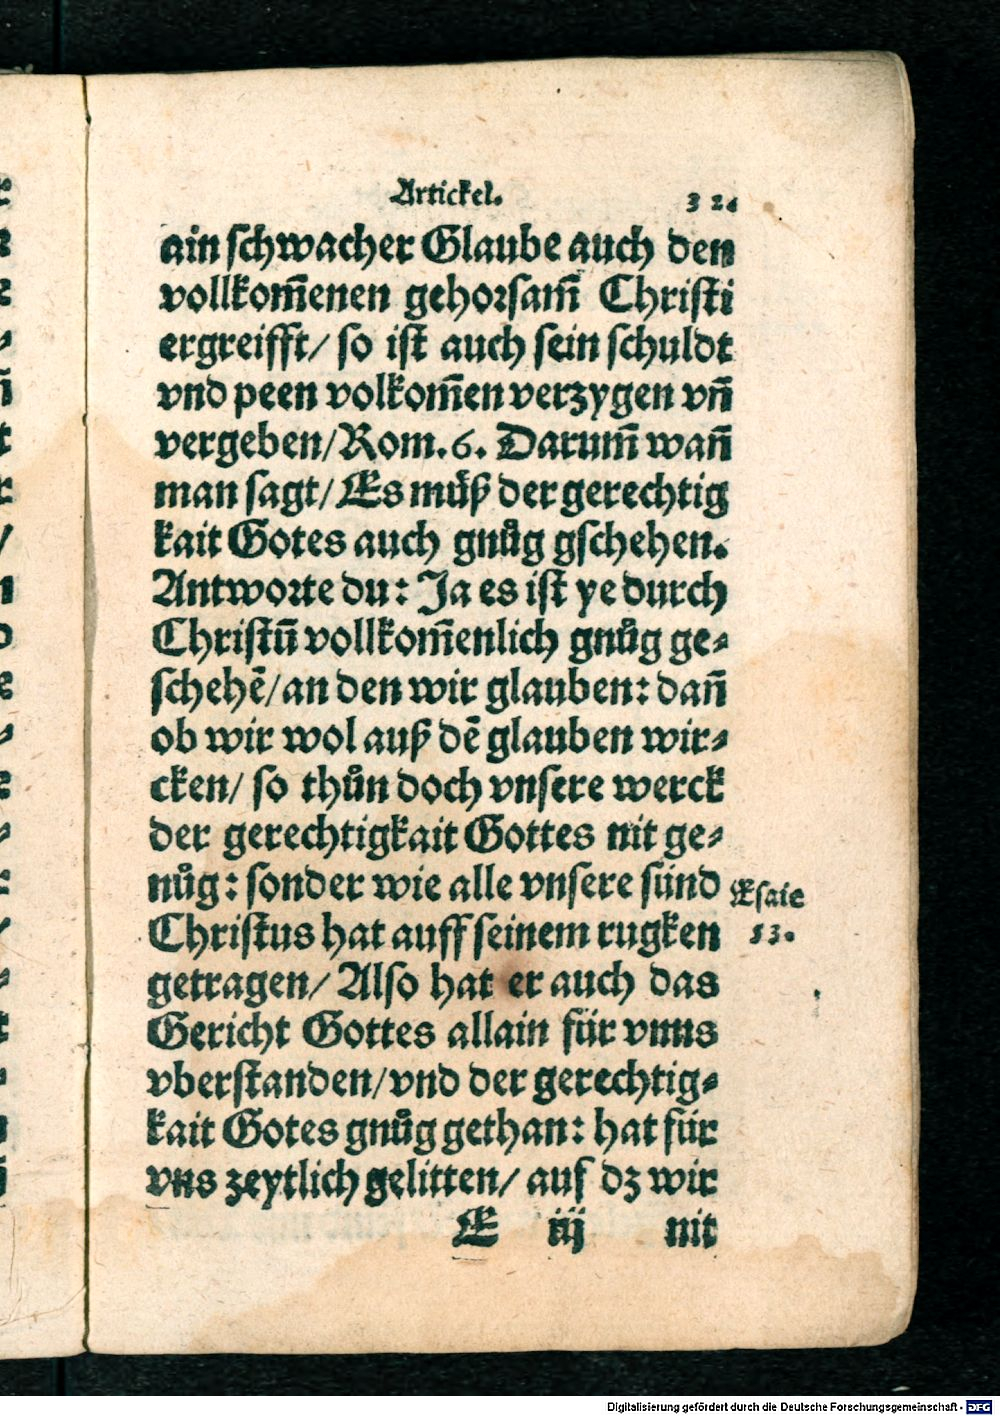 Artickel.
ain schwacher Glaube auch den
vollkom̄enen gehorsam̄ Christi
ergreifft/ so ist auch sein schuldt
vnd peen volkom̄en verzygen vn̄
vergeben/Rom.6. Darum̄ wan̄
man sagt/ Es můß der gerechtig
kait Gotes auch gnůg gschehen.
Antworte du: Ja es ist ye durch
Christū vollkom̄enlich gnůg ge⸗
schehē/an den wir glauben: dan̄
ob wir wol auß dē glauben wir⸗
cken/ so thůn doch vnsere werck
der gerechtigkait Gottes nit ge⸗
nůg: sonder wie alle vnsere sünd
Christus hat auff seinem rugken
getragen/ Also hat er auch das
Gericht Gottes allain für vnns
vberstanden/vnd der gerechtig⸗
kait Gotes gnůg gethan: hat für
vns zeytlich gelitten/ auf dz wir
E iij nit
Esaie
53.
Digitalisierung gefördert durch die Deutsche Forschungsgemeinschaft - DFG